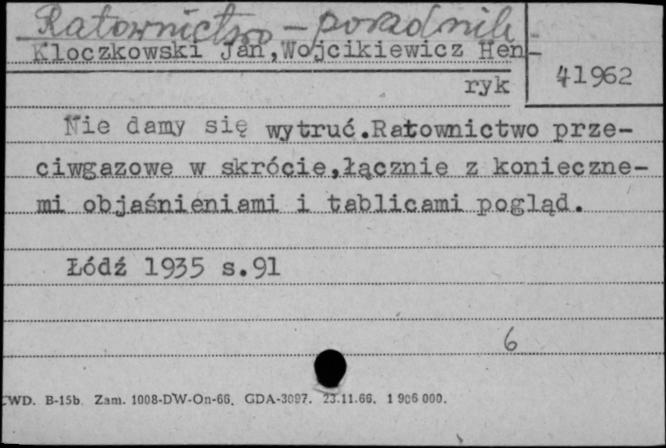 Ratownictwo - poradnik
Kloczkowski Jan,Wojcikiewicz Hen-
ryk
41962
Nie damy się wytruć.Ratownictwo prze-
ciwgazowe w skrócie,łącznie z konieczne-
mi objaśnieniami i tablicami pogląd.
Łódź 1935 s.91
6
CWD. B-15b. Zam. 1008-DW-On-66. GDA-3097. 23.11.66. 1 906 000.